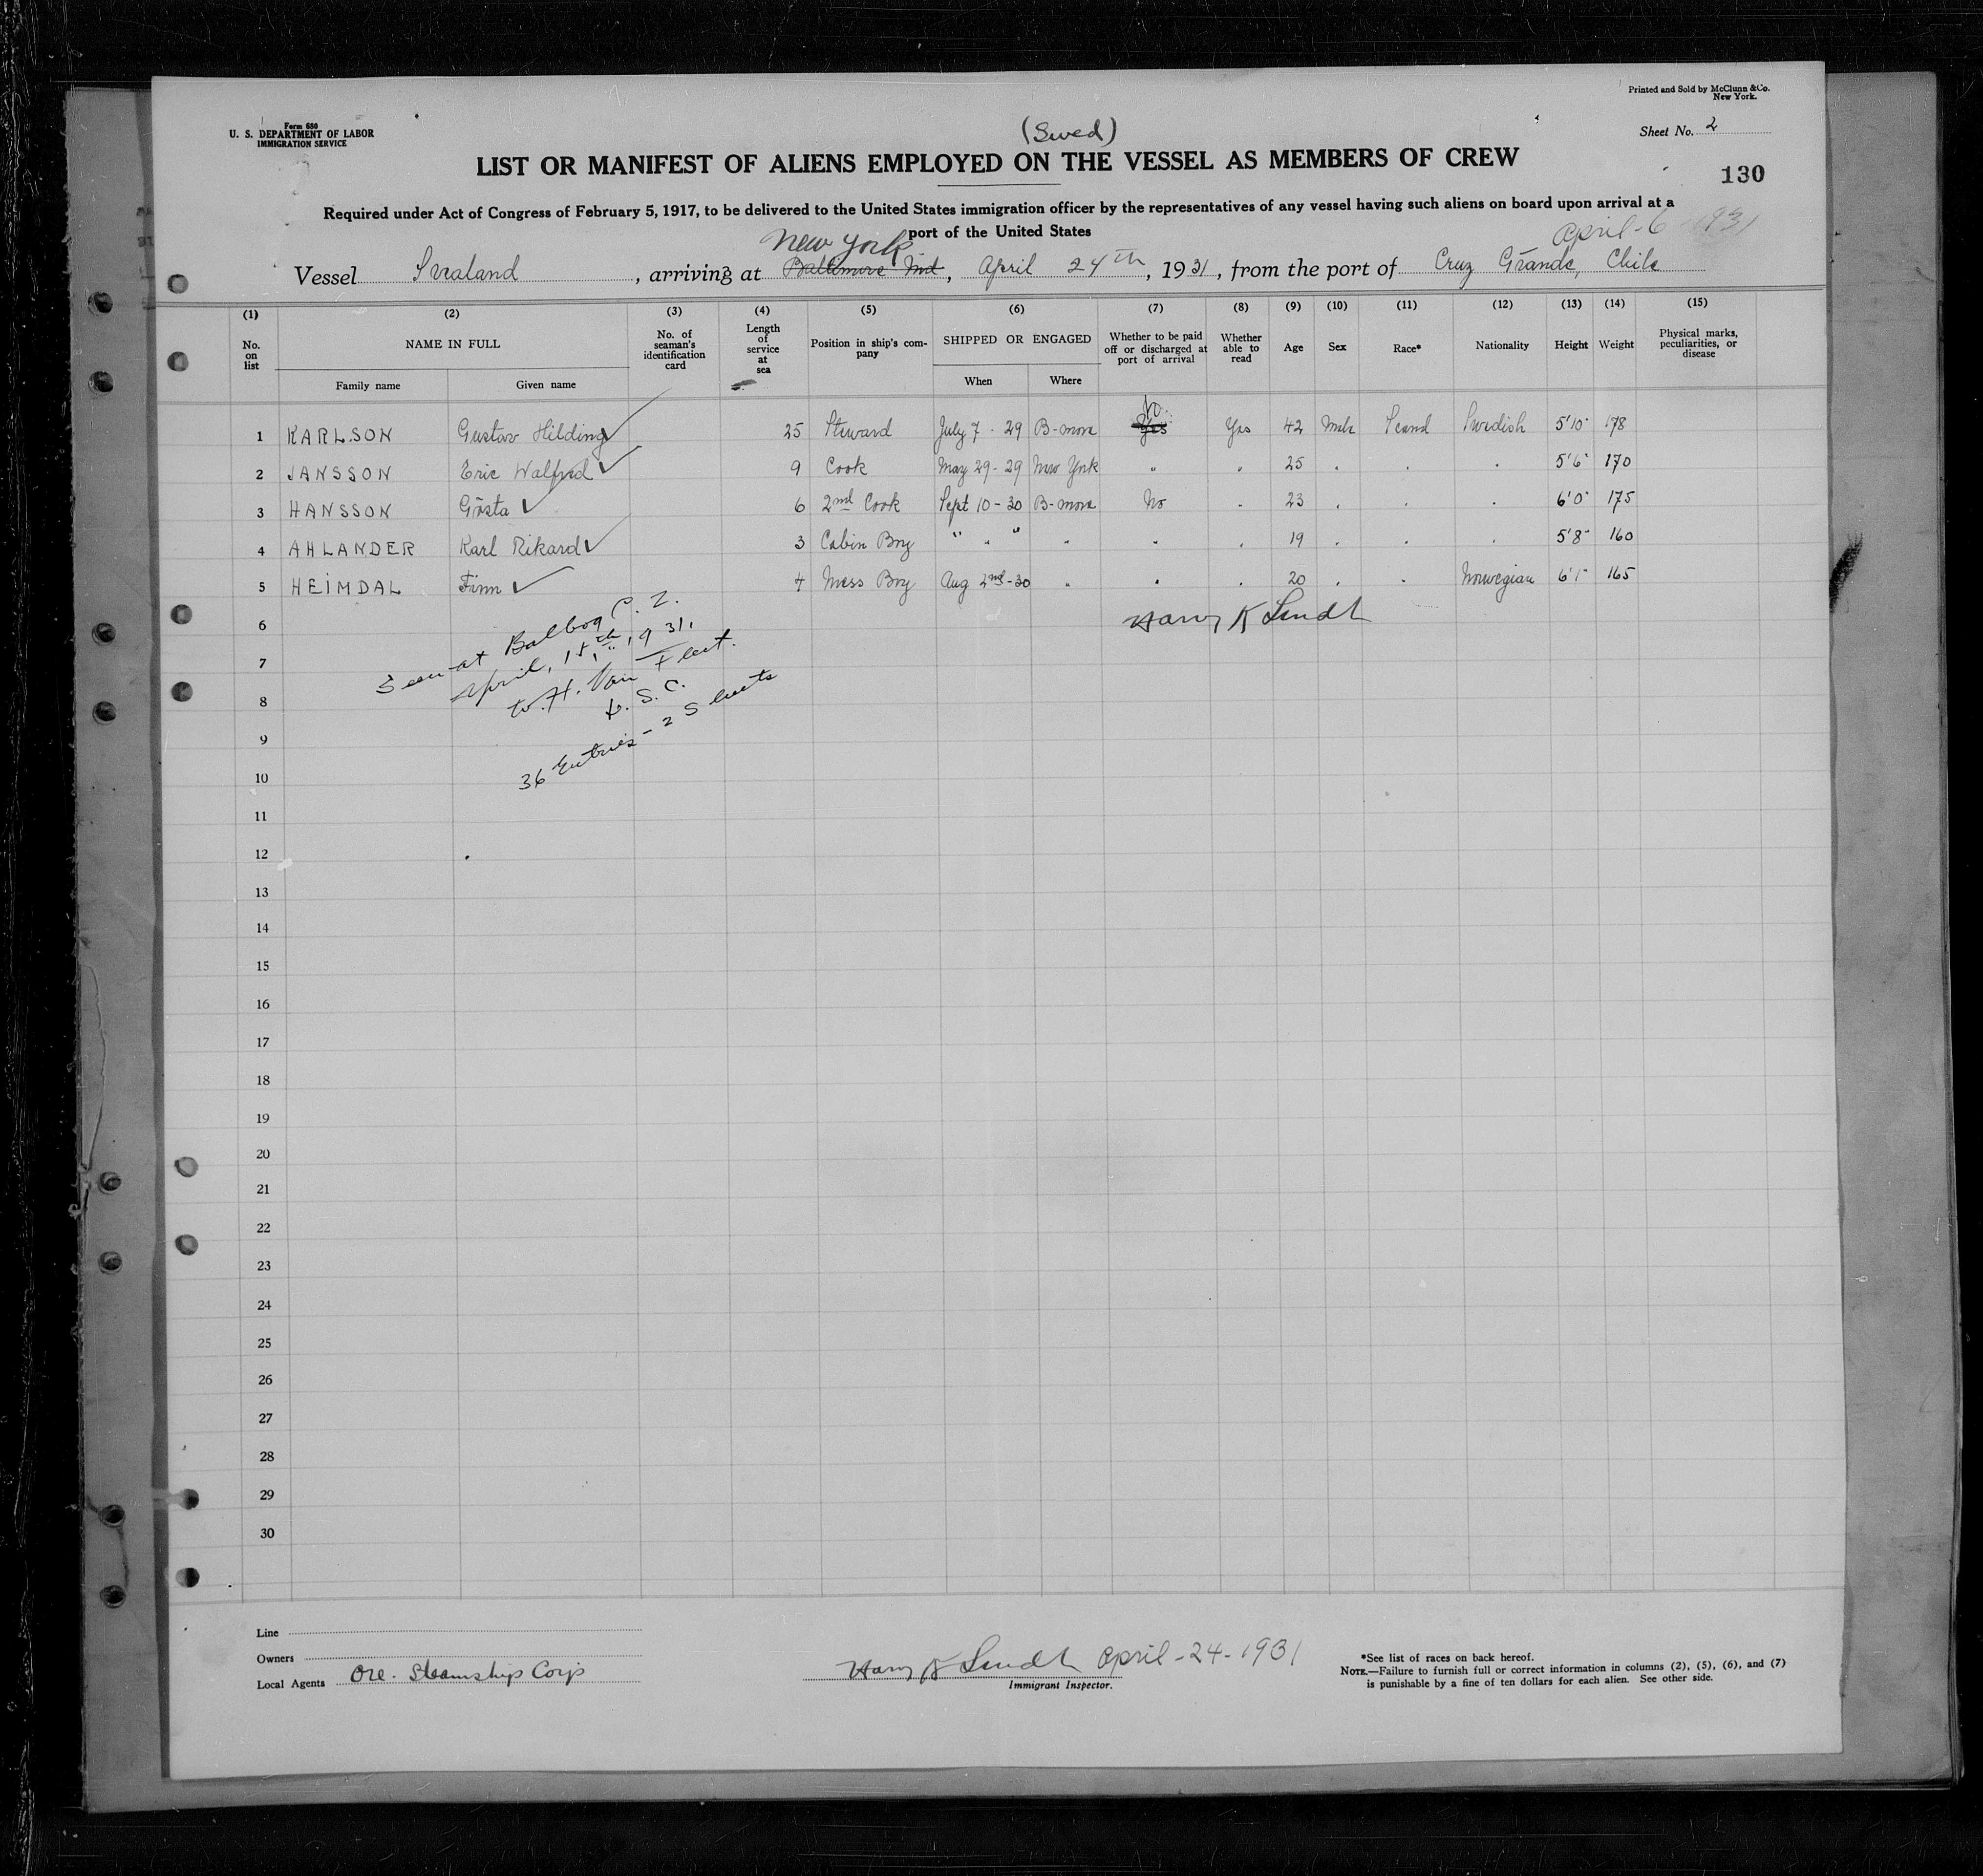 Printed and Sold by McClunn & Co.
New York.
Form 680
U. S. DEPARTMENT OF LABOR
IMMIGRATION SERVICE
(Swed)
Sheet No. 2
LIST OR MANIFEST OF ALIENS EMPLOYED ON THE VESSEL AS MEMBERS OF CREW
130
Required under Act of Congress of February 5, 1917, to be delivered to the United States immigration officer by the representatives of any vessel having such aliens on board upon arrival at a
port of the United States
April-6 1931
New York
Vessel Svealand, arriving at Baltimore Md, April 24th, 1931, from the port of Cruz Grande, Chile
(1) (2) (3) (4) (5) (6) (7) (8) (9) (10) (11) (12) (13) (14) (15)
No. on list NAME IN FULL No. of seaman's identification card Length of service at sea Position in ship's company SHIPPED OR ENGAGED Whether to be paid off or discharged at port of arrival Whether able to read Age Sex Race* Nationality Height Weight Physical marks, peculiarities, or disease
Family name Given name When Where
No
1 KARLSON Gustav Hilding ✓ 25 Steward July 7 - 29 B-more Yes Yes 42 Male Scand Swedish 5'10" 178
2 JANSSON Eric Walfrid ✓ 9 Cook May 29-29 New York " " 25 " " " 5'6" 170
3 HANSSON Gösta ✓ 6 2nd Cook Sept 10-30 B-more No " 23 " " " 6'0" 175
4 AHLANDER Karl Rikard ✓ 3 Cabin Boy " " " " " " 19 " " " 5'8" 160
5 HEIMDAL Finn ✓ 4 Mess Boy Aug 2nd-30 " " " 20 " " Norwegian 6'1" 165
6
Harry K Lindt
7
8
9
10
Seen at Balboa C. Z.
April, 15th, 1931.
W. H. Van Fleet.
U. S. C.
36 Entries - 2 Sheets
11
12
13
14
15
16
17
18
19
20
21
22
23
24
25
26
27
28
29
30
Line
Owners
Local Agents Ore. Steamship Corp
Harry K Lindt April-24-1931
Immigrant Inspector.
*See list of races on back hereof.
NOTE.—Failure to furnish full or correct information in columns (2), (5), (6), and (7)
is punishable by a fine of ten dollars for each alien. See other side.